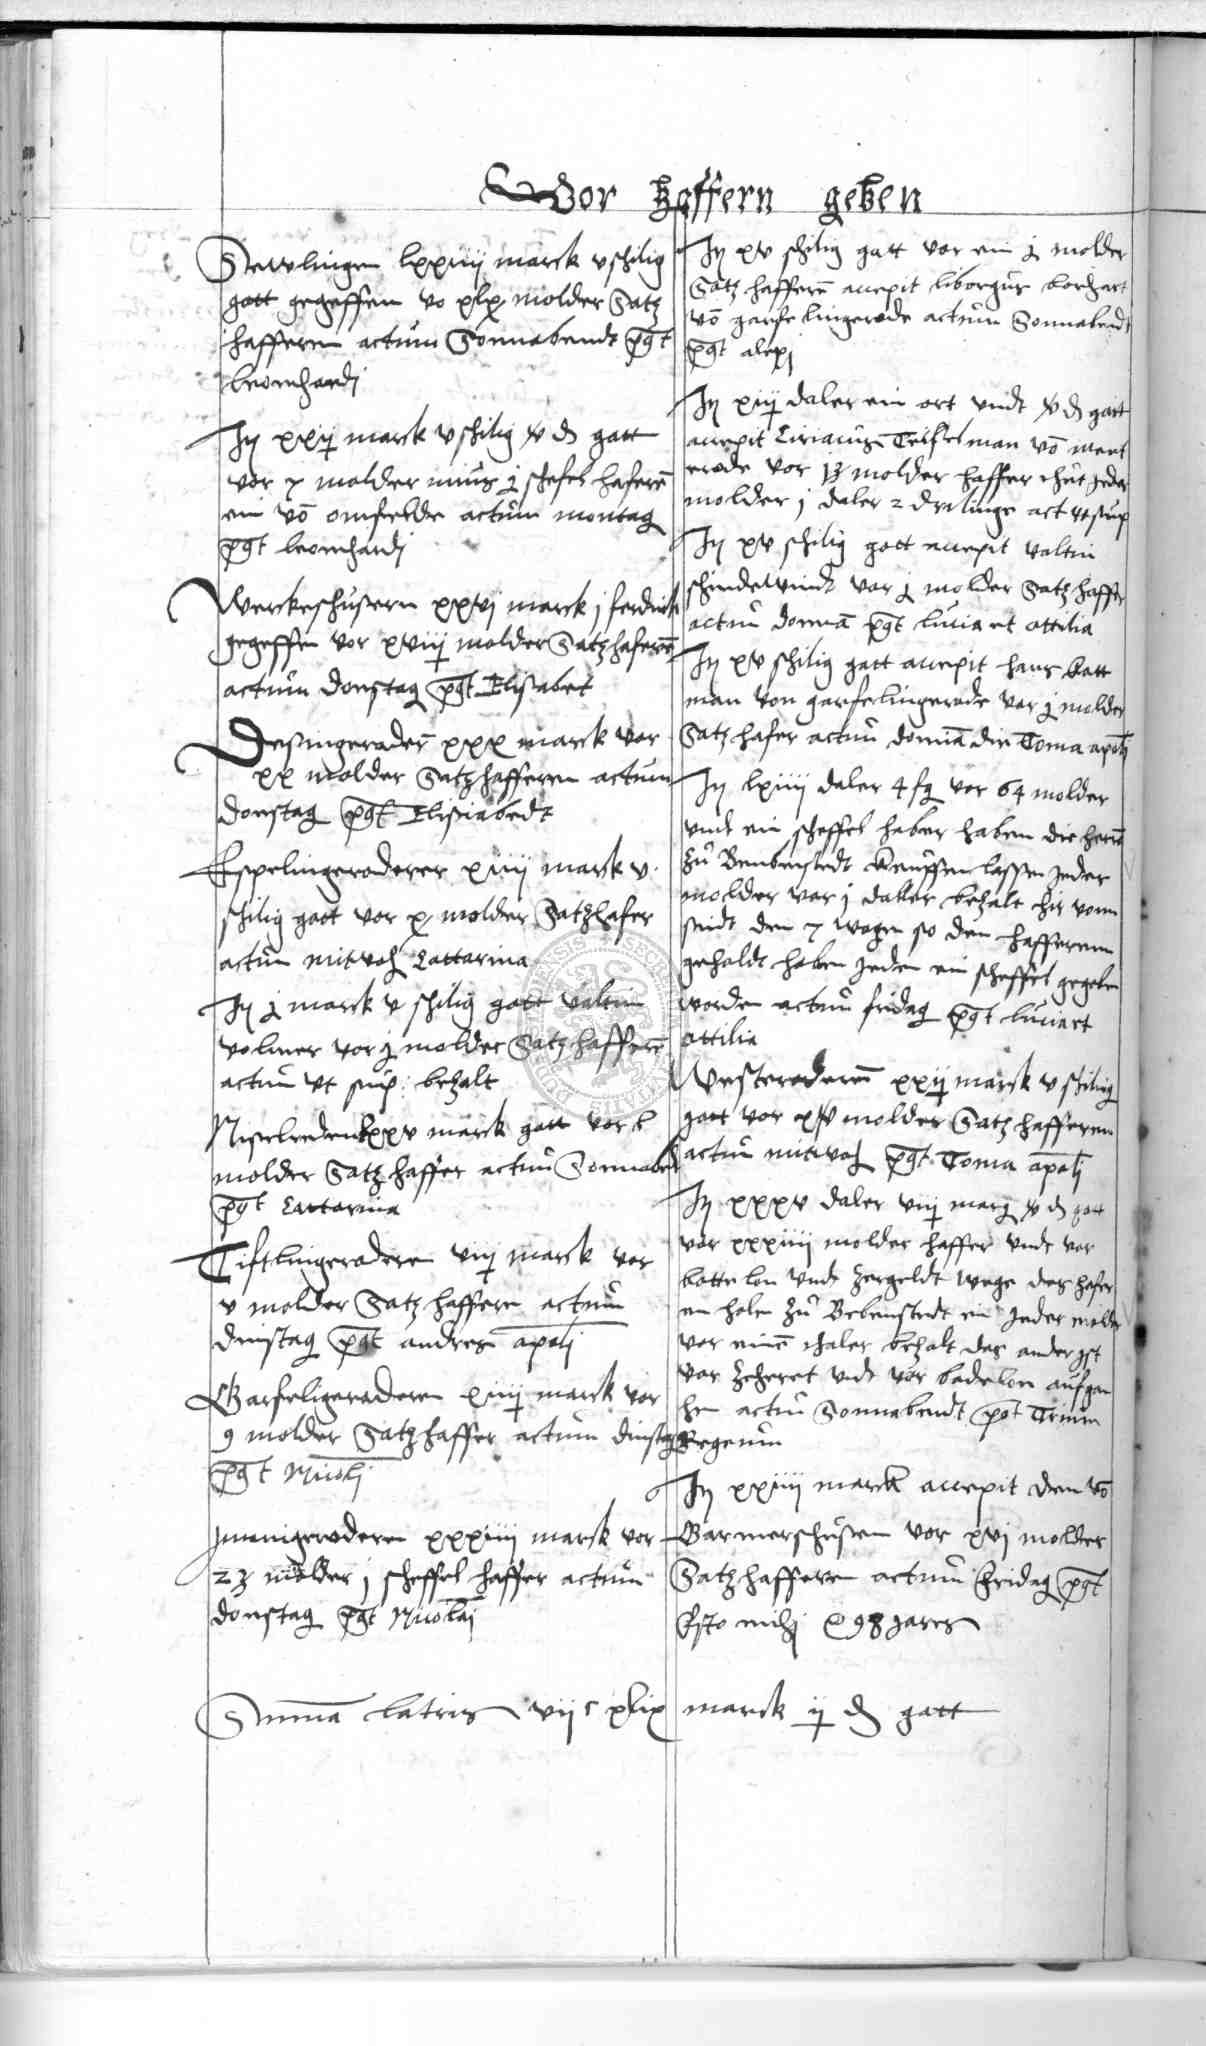 Vor haffern geben
Dewlingen lxxiiij marck v schilig
gott gegeffen vo xlix molder Satz
hafferen actum Sonnabendt pgt
leonhardj
Jtj xxij marck v schilig iiij d gott
vor 7 molder minus j schefel haferē
ein vō omfelde actum montag
pgt leonhardj
Werckeshusern xxvj marck j ferdink
gegeffen vor xviij molder Satzhaferē
actum donstag pgt Elisabet
Desingeroder xxx marck vor
xx molder Satzhafferen actum
donstag pgt Elisiabedt
Espelingeroderer xiiij marck v
schilig gott vor x molder Satzhafer
actum mitwoch Cattarina
Jtj j marck v schilig gott valtin
volmer vor j molder Satzhafferē
actum vt sup: bezalt
Niselreden lxxv marck gott vor l
molder Satzhaffer actum Sonnabet
pgt Cattarina
Tistlingeroderen viij marck vor
v molder Satzhafferen actum
dinstag pgt andres apolj
Garfeligeroderen xiiij marck vor
9 molder Satzhaffer actum dinstag
pgt Nicolj
jmmigeroderen xxxiiij marck vor
23 molder j scheffel haffer actum
donstag pgt Nicolaj
Jtj xv schilig gott vor ein j molder
Satz hafferē accepit liborgus borchart
vō garfelingerode actum Sonnabendt
pgt alexj
Jtj xiij daler ein ort vndt iiij d gott
accepit Ciriacus Teistelman vō ment
erode vor 13 molder haffer thut jeder
molder j daler 2 drelinge act vt sup
Jtj xv schilig gott accepit valtin
schindewindt vor j molder Satzhaffer
actum donnā pgt lucia et ottilia
Jtj xv schilig gott accepit hans katt
man von garfelingerode vor j molder
Satz hafer actum donnā die Toma apolj
Jtj lxiiii daler 4 sg vor 64 molder
vndt ein scheffel haber haben die herē
zu Bembenstedt keuffen lassen jeder
molder vor j daller bezalt hir vonn
seindt den 7 wagen so den hafferenn
geholdt haben jeden ein scheffel gegeben
worden actum fridag pgt lucia et
ottilia
Westeroderenn xxij marck v schilig
gott vor xv molder Satzhafferenn
actum mitwoch pgt Toma apolj
Jtj xxxv daler viij marg iiij d gott
vor xxxiiij molder haffer vndt vor
botte lon vndt zergeldt wege des hafer
en holen zu Bebenstedt ein jeder molder
vor einē thaler bezalt das ander ist
vor zeheret vndt vor bodelon aufgan
hen actum Sonnabendt pgt Trium
Regeum
Jtj xxiiij marck accepit den vō
Barmershusen vor xvj molder
Satzhafferen actum Fridag pgt
Esto mihj 98 jares
Summa latris vij c xlix marck ij d gott